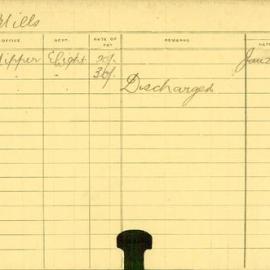 Mills
OFFICE. DEPT. RATE OF PAY REMARKS DATE
Nipper Elight 20/- Jan 2
" " 30/-
Discharged